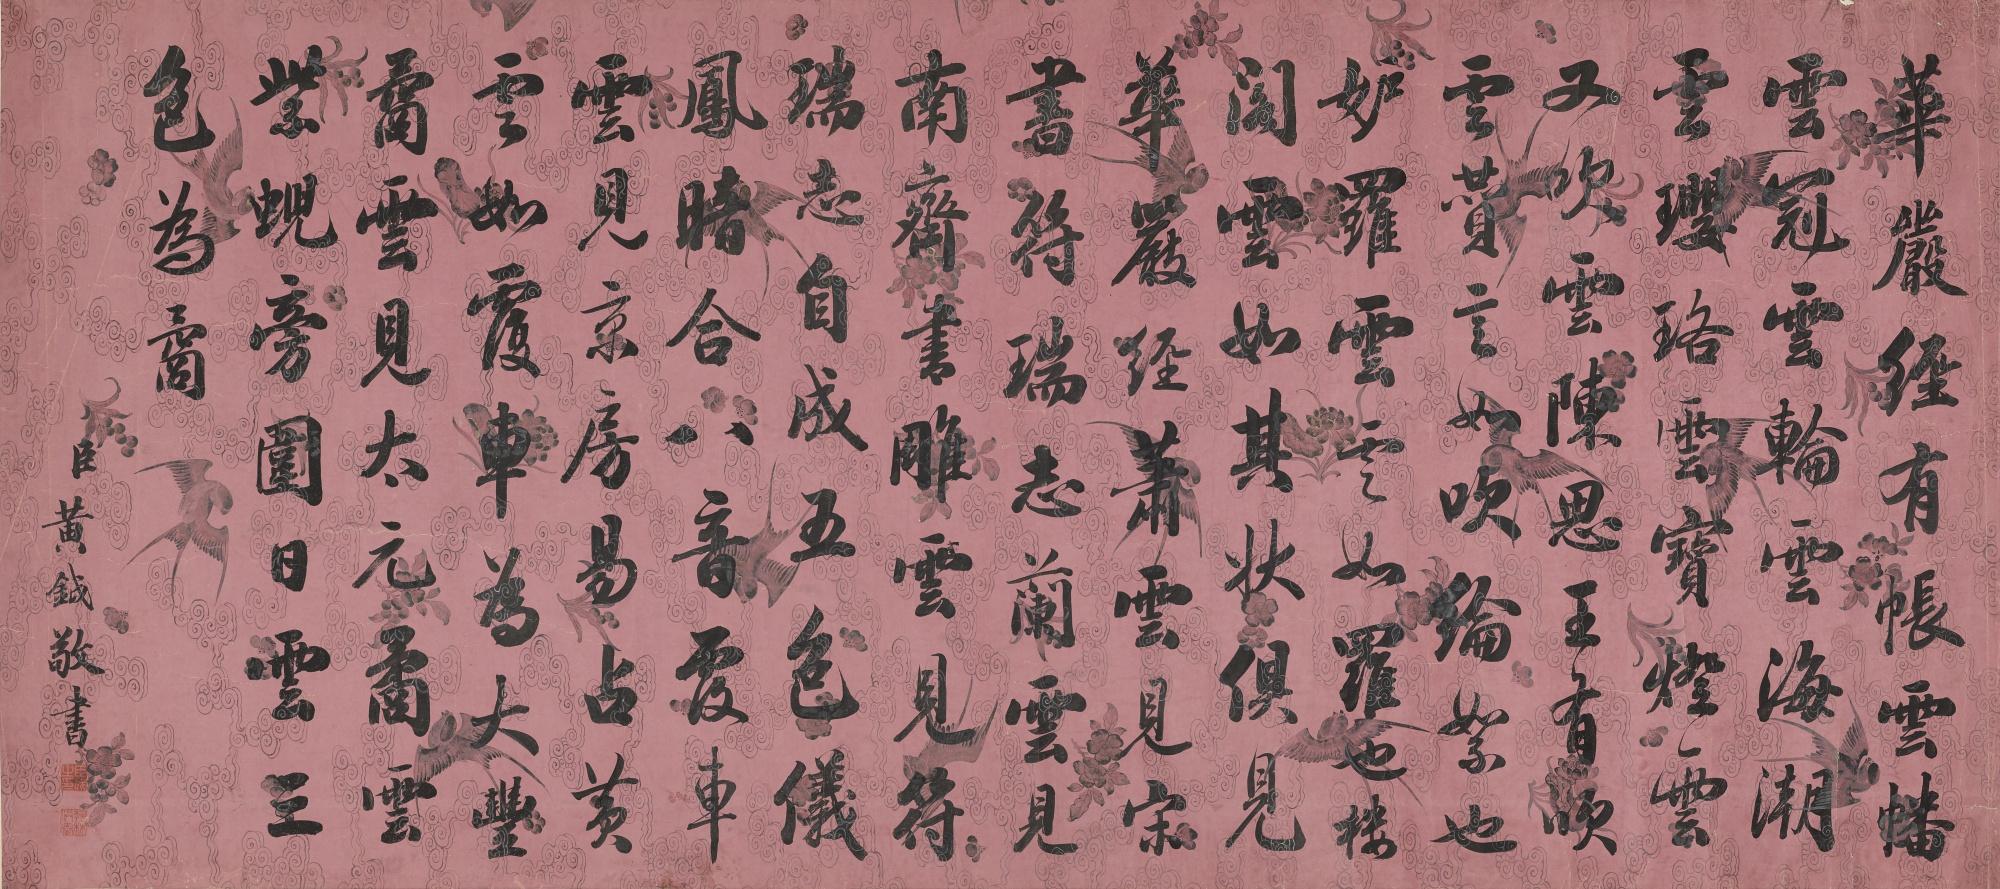 華嚴經有帳雲幡
雲冠雲輪雲海潮
雲瓔珞雲寶燈雲
又吹雲陳思王有吹
雲贊言如吹綸如絮也
妒羅雲言如羅也樓
閣雲如其狀俱見
華嚴經蕭雲見宋
書符瑞志蘭雲見
南齊書雕雲見符
瑞志自成五色儀
鳳晴合八音霞車
雲見京房易占黃
雲如霞車為大豐
矞雲見太元矞雲
紫蜺旁圍日雲三
色為矞
臣黃鉞敬書